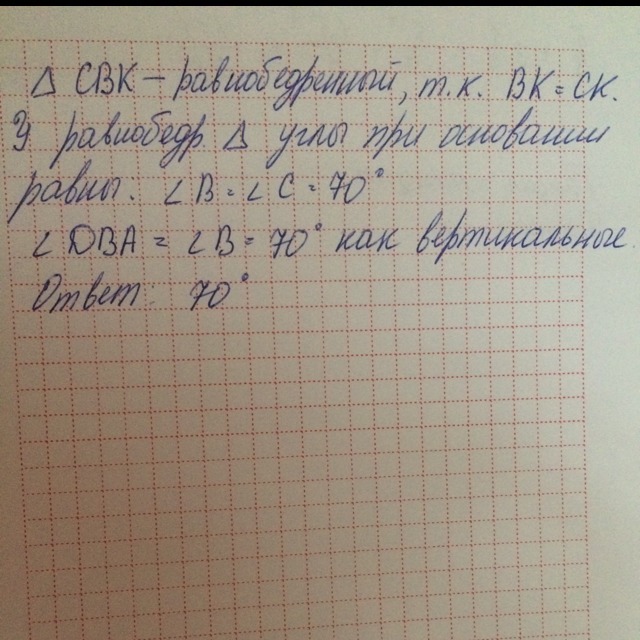 Δ CBK – равнобедренный, т.к. BK = CK.
У равнобедр Δ углы при основании
равны: ∠ B = ∠ C = 70°
∠ DBA = ∠ B = 70° как вертикальные.
Ответ: 70°